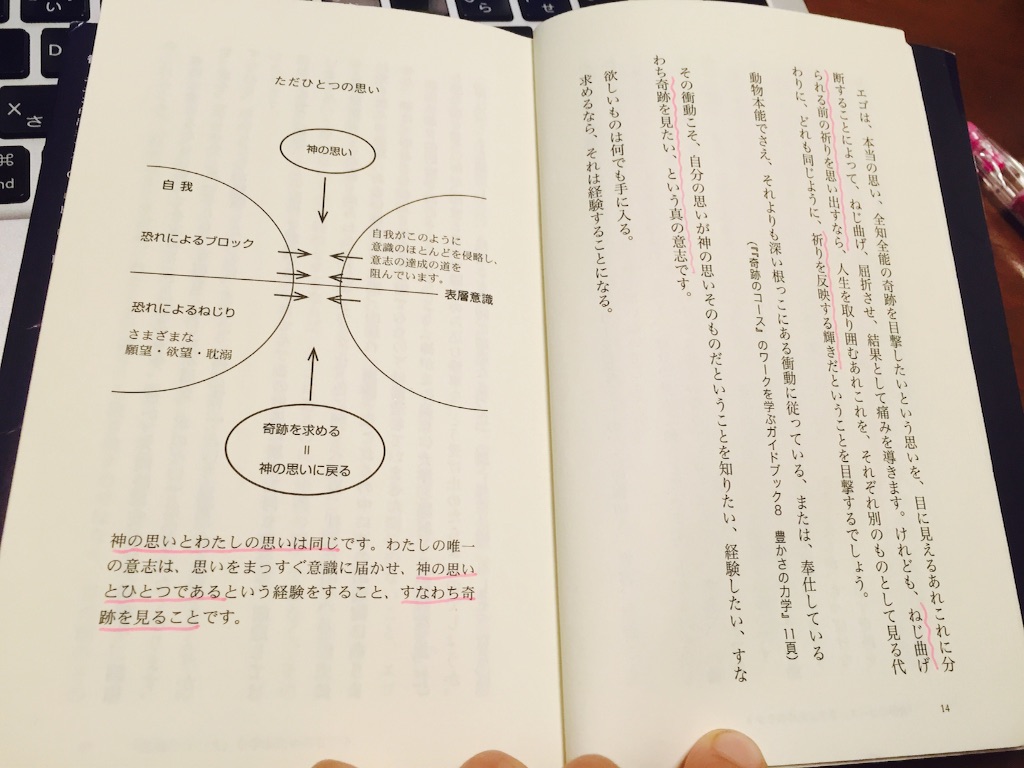 エゴは、本当の思い、全知全能の奇跡を目撃したいという思いを、目に見えるあれこれに分
断することによって、ねじ曲げ、屈折させ、結果として痛みを導きます。けれども、ねじ曲げ
られる前の祈りを思い出すなら、人生を取り囲むあれこれを、それぞれ別のものとして見る代
わりに、どれも同じように、祈りを反映する輝きだということを目撃するでしょう。
動物本能でさえ、それよりも深い根っこにある衝動に従っている、または、奉仕している
(『『奇跡のコース』のワークを学ぶガイドブック8 豊かさの力学』11頁)
その衝動こそ、自分の思いが神の思いそのものだということを知りたい、経験したい、すな
わち奇跡を見たい、という真の意志です。
欲しいものは何でも手に入る。
求めるなら、それは経験することになる。
14
ただひとつの思い
神の思い
自我
恐れによるブロック
自我がこのように
意識のほとんどを侵略し、
意志の達成の道を
阻んでいます。
表層意識
恐れによるねじり
さまざまな
願望・欲望・耽溺
奇跡を求める
=
神の思いに戻る
神の思いとわたしの思いは同じです。わたしの唯一
の意志は、思いをまっすぐ意識に届かせ、神の思い
とひとつであるという経験をすること、すなわち奇
跡を見ることです。
D
い
X
さ
⌘
nd
せ